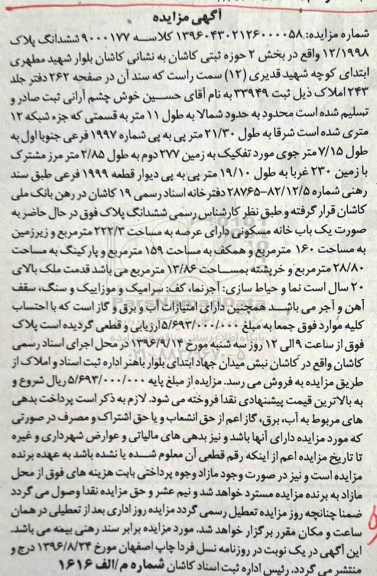 آگهی مزایده
شماره مزایده: ۱۳۹۶۰۴۳۰۲۱۲۶۰۰۰۰۵۸ کلاسه ۹۰۰۰۱۷۷ ششدانگ پلاک
۱۲/۱۹۹۸ واقع در بخش ۲ حوزه ثبتی کاشان به نشانی کاشان بلوار شهید مطهری
ابتدای کوچه شهید قدیری (۱۲) سمت راست که سند آن در صفحه ۲۶۲ دفتر جلد
۲۴۳ املاک ذیل ثبت ۳۳۹۴۹ به نام آقای حسین خوش چشم آرانی ثبت صادر و
تسلیم شده است محدود به حدود شمالا به طول ۱۱ متر به قسمتی که جزء شبکه ۱۲
متری شده است شرقا به طول ۲۱/۳۰ متر پی به پی شماره ۱۹۹۷ فرعی جنوبا اول به
طول ۷/۱۵ متر جوی مورد تفکیک به زمین ۲۷۷ دوم به طول ۲/۸۵ متر مرز مشترک
با زمین ۲۳۰ غربا به طول ۱۹/۱۰ متر پی به پی دیوار قطعه ۱۹۹۹ فرعی طبق سند
رهنی شماره ۸۲/۱۲/۵-۲۸۷۶۵ دفترخانه اسناد رسمی ۱۹ کاشان در رهن بانک ملی
کاشان قرار گرفته و طبق نظر کارشناس رسمی ششدانگ پلاک فوق در حال حاضر به
صورت یک باب خانه مسکونی دارای عرصه به مساحت ۲۲۲/۳ مترمربع و زیرزمین
به مساحت ۱۶۰ مترمربع و همکف به مساحت ۱۵۹ مترمربع و پارکینگ به مساحت
۲۸/۸۰ مترمربع و خرپشته بمساحت ۱۳/۸۶ مترمربع می باشد قدمت ملک بالای
۲۰ سال است نما و حیاط سازی: آجرنما، کف: سرامیک و موزاییک و سنگ، سقف
آهن و آجر می باشد همچنین دارای امتیازات آب و برق و گاز است که با احتساب
کلیه موارد فوق جمعا به مبلغ ۵/۶۹۳/۰۰۰/۰۰۰ ارزیابی و قطعی گردیده است پلاک
فوق از ساعت ۹ الی ۱۲ روز سه شنبه مورخ ۱۳۹۶/۹/۱۴ در محل اجرای اسناد رسمی
کاشان واقع در کاشان نبش میدان جهاد ابتدای بلوار باهنر اداره ثبت اسناد و املاک از
طریق مزایده به فروش می رسد. مزایده از مبلغ پایه ۵/۶۹۳/۰۰۰/۰۰۰ ریال شروع و
به بالاترین قیمت پیشنهادی نقدا فروخته می شود. لازم به ذکر است پرداخت بدهی
های مربوط به آب، برق، گاز اعم از حق انشعاب و یا حق اشتراک و مصرف در صورتی
که مورد مزایده دارای آنها باشد و نیز بدهی های مالیاتی و عوارض شهرداری و غیره
تا تاریخ مزایده اعم از اینکه رقم قطعی آن معلوم شده یا نشده باشد به عهده برنده
مزایده است و نیز در صورت وجود مازاد وجوه پرداختی بابت هزینه های فوق از محل
مازاد به برنده مزایده مسترد خواهد شد و نیم عشر و حق مزایده نقدا وصول می گردد
ضمنا چنانچه روز مزایده تعطیل رسمی گردد مزایده روز اداری بعد از تعطیلی در همان
ساعت و مکان مقرر برگزار خواهد شد. مورد مزایده برابر سند رهنی بیمه می باشد.
این آگهی در یک نوبت در روزنامه نسل فردا چاپ اصفهان مورخ ۱۳۹۶/۸/۲۴ درج و
منتشر می گردد. رئیس اداره ثبت اسناد کاشان شماره م/الف ۱۶۱۶